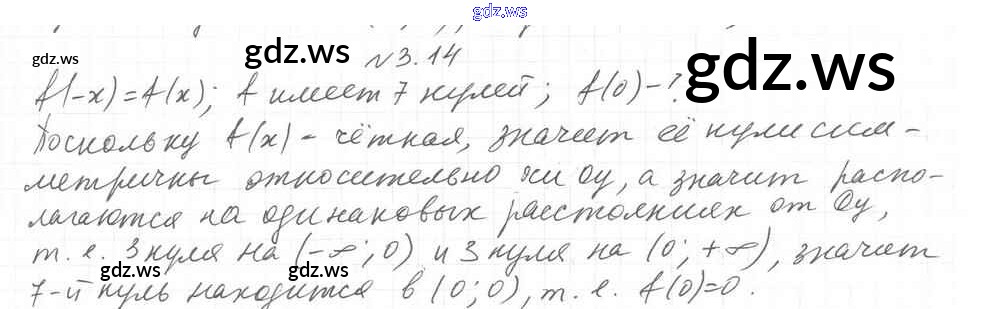 gdz.ws
№3.14
gdz.ws gdz.ws gdz.ws
f(-x)=f(x); f имеет 7 нулей; f(0)-?
Поскольку f(x) - чётная, значит её нули сим-
метричны относительно оси Oy, а значит распо-
лагаются на одинаковых расстояниях от Oy,
т. е. 3 нуля на (-∞; 0) и 3 нуля на (0; +∞), значит
gdz.ws gdz.ws
7-й нуль находится в (0; 0), т. е. f(0)=0.